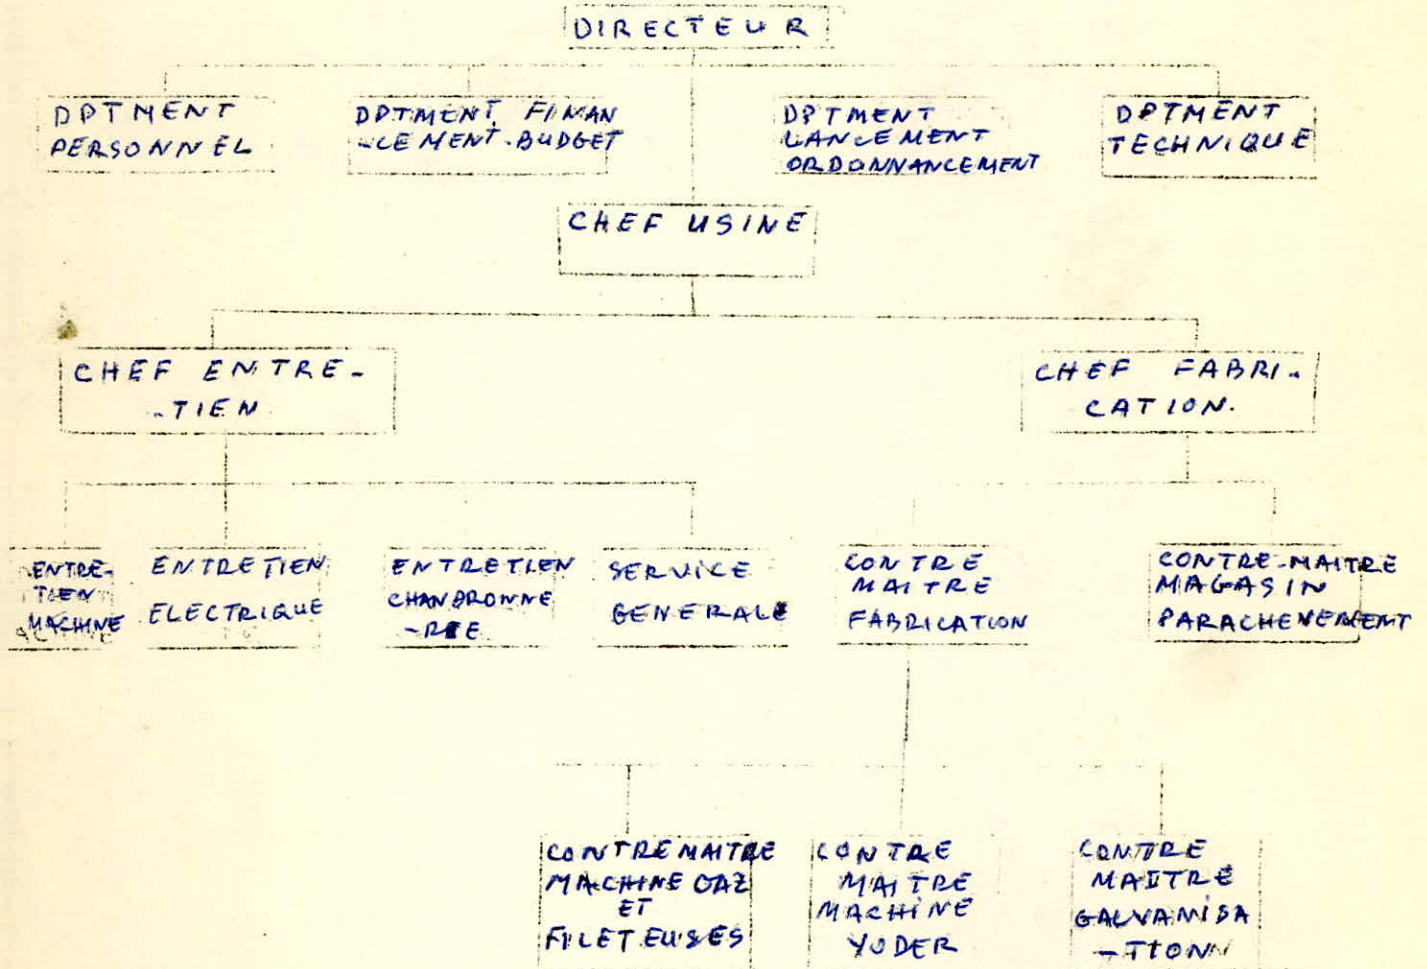 DIRECTEUR
DPTMENT
PERSONNEL
DPTMENT FINAN
-CEMENT-BUDGET
DPTMENT
LANCEMENT
ORDONNANCEMENT
DPTMENT
TECHNIQUE
CHEF USINE
CHEF ENTRE-
-TIEN
CHEF FABRI-
CATION.
ENTRE-
TIEN
MACHINE
ENTRETIEN
ELECTRIQUE
ENTRETIEN
CHANDRONNE
-REE
SERVICE
GENERALE
CONTRE
MAITRE
FABRICATION
CONTRE-MAITRE
MAGASIN
PARACHEVEMENT
CONTREMAITRE
MACHINE GAZ
ET
FILETEUSES
CONTRE
MAITRE
MACHINE
YODER
CONTRE
MAITRE
GALVANISA
-TION